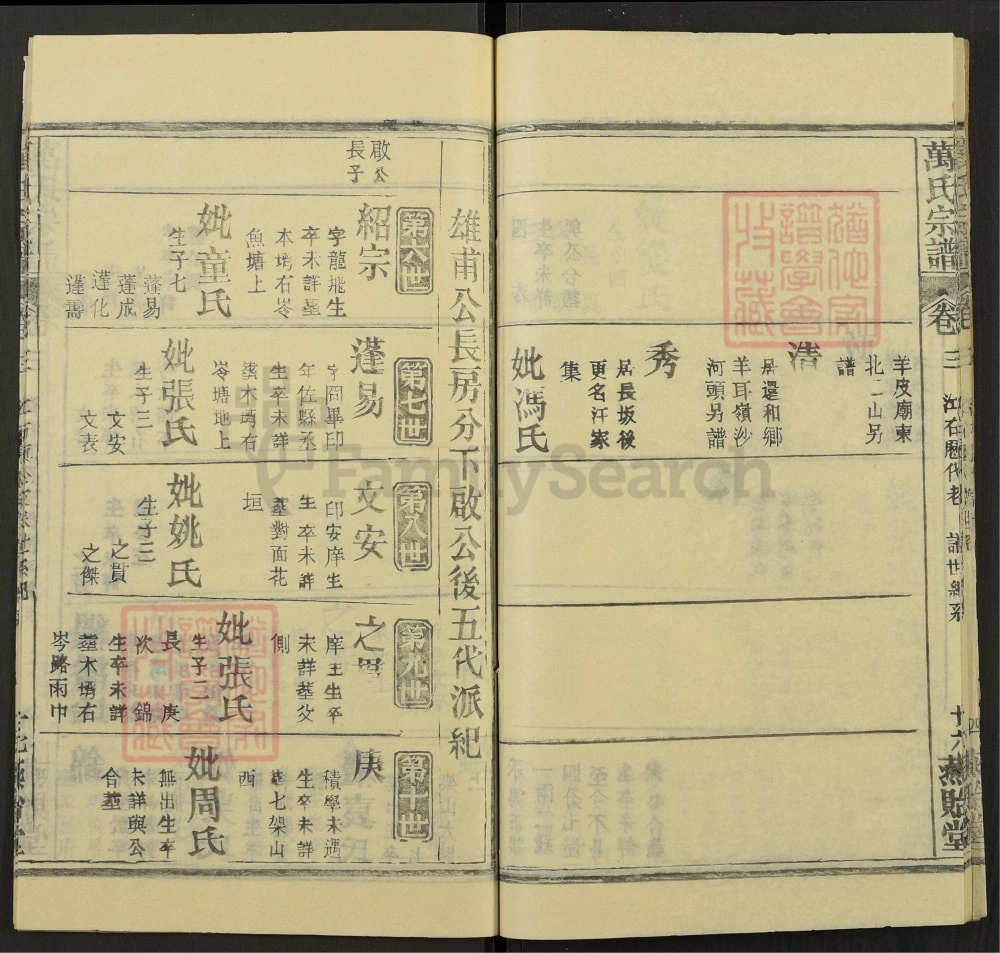 萬氏宗譜
卷三
江右歷代老譜世紀系
十六
燕貽堂
羊皮廟東
北二山另
譜
清
居還和鄉
羊耳嶺沙
河頭另譜
秀
居長坂後
更名汗家
集
妣馮氏
雄甫公長房分下啟公後五代派紀
第六世
啟公
長子
紹宗
字龍飛生
卒未詳墓
本塆右岺
魚塘上
妣童氏
生子七
蓬易
蓬成
蓬化
蓬需
第七世
蓬易
年佐縣丞
生卒未詳
岺塘地上
妣張氏
生子三
文安
文表
第八世
文安
印安庠生
生卒未詳
墓對面花
垣
妣姚氏
生子三
之貫
之傑
第九世
之貫
庠生生卒
未詳墓父
側
妣張氏
生子二
長 庚
次 錦
生卒未詳
墓木塆右
岺路雨巾
第十世
庚
積學未遇
生卒未詳
墓七架山
西
妣周氏
無出生卒
未詳與公
合墓
FamilySearch